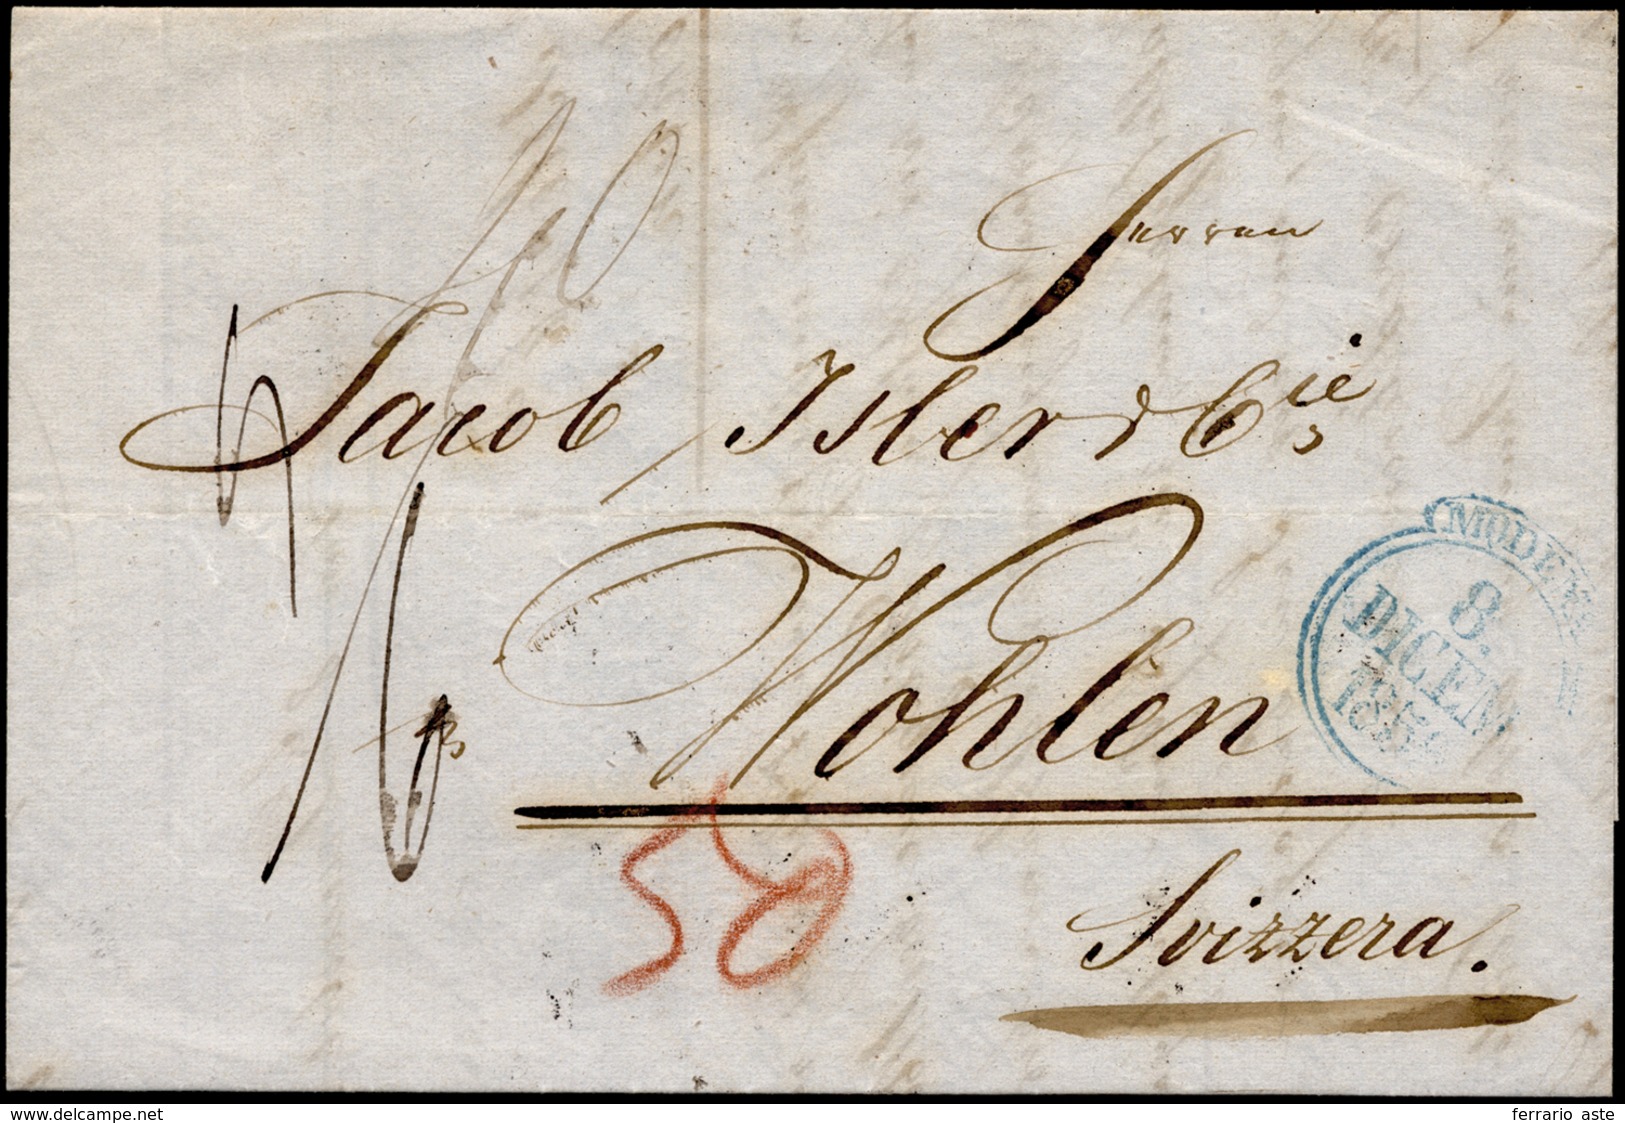 Herren
Jacob Isler & Cie
Wohlen
Svizzera.
50
MODENA
8.
DICEM
185
www.delcampe.net
ferrario aste